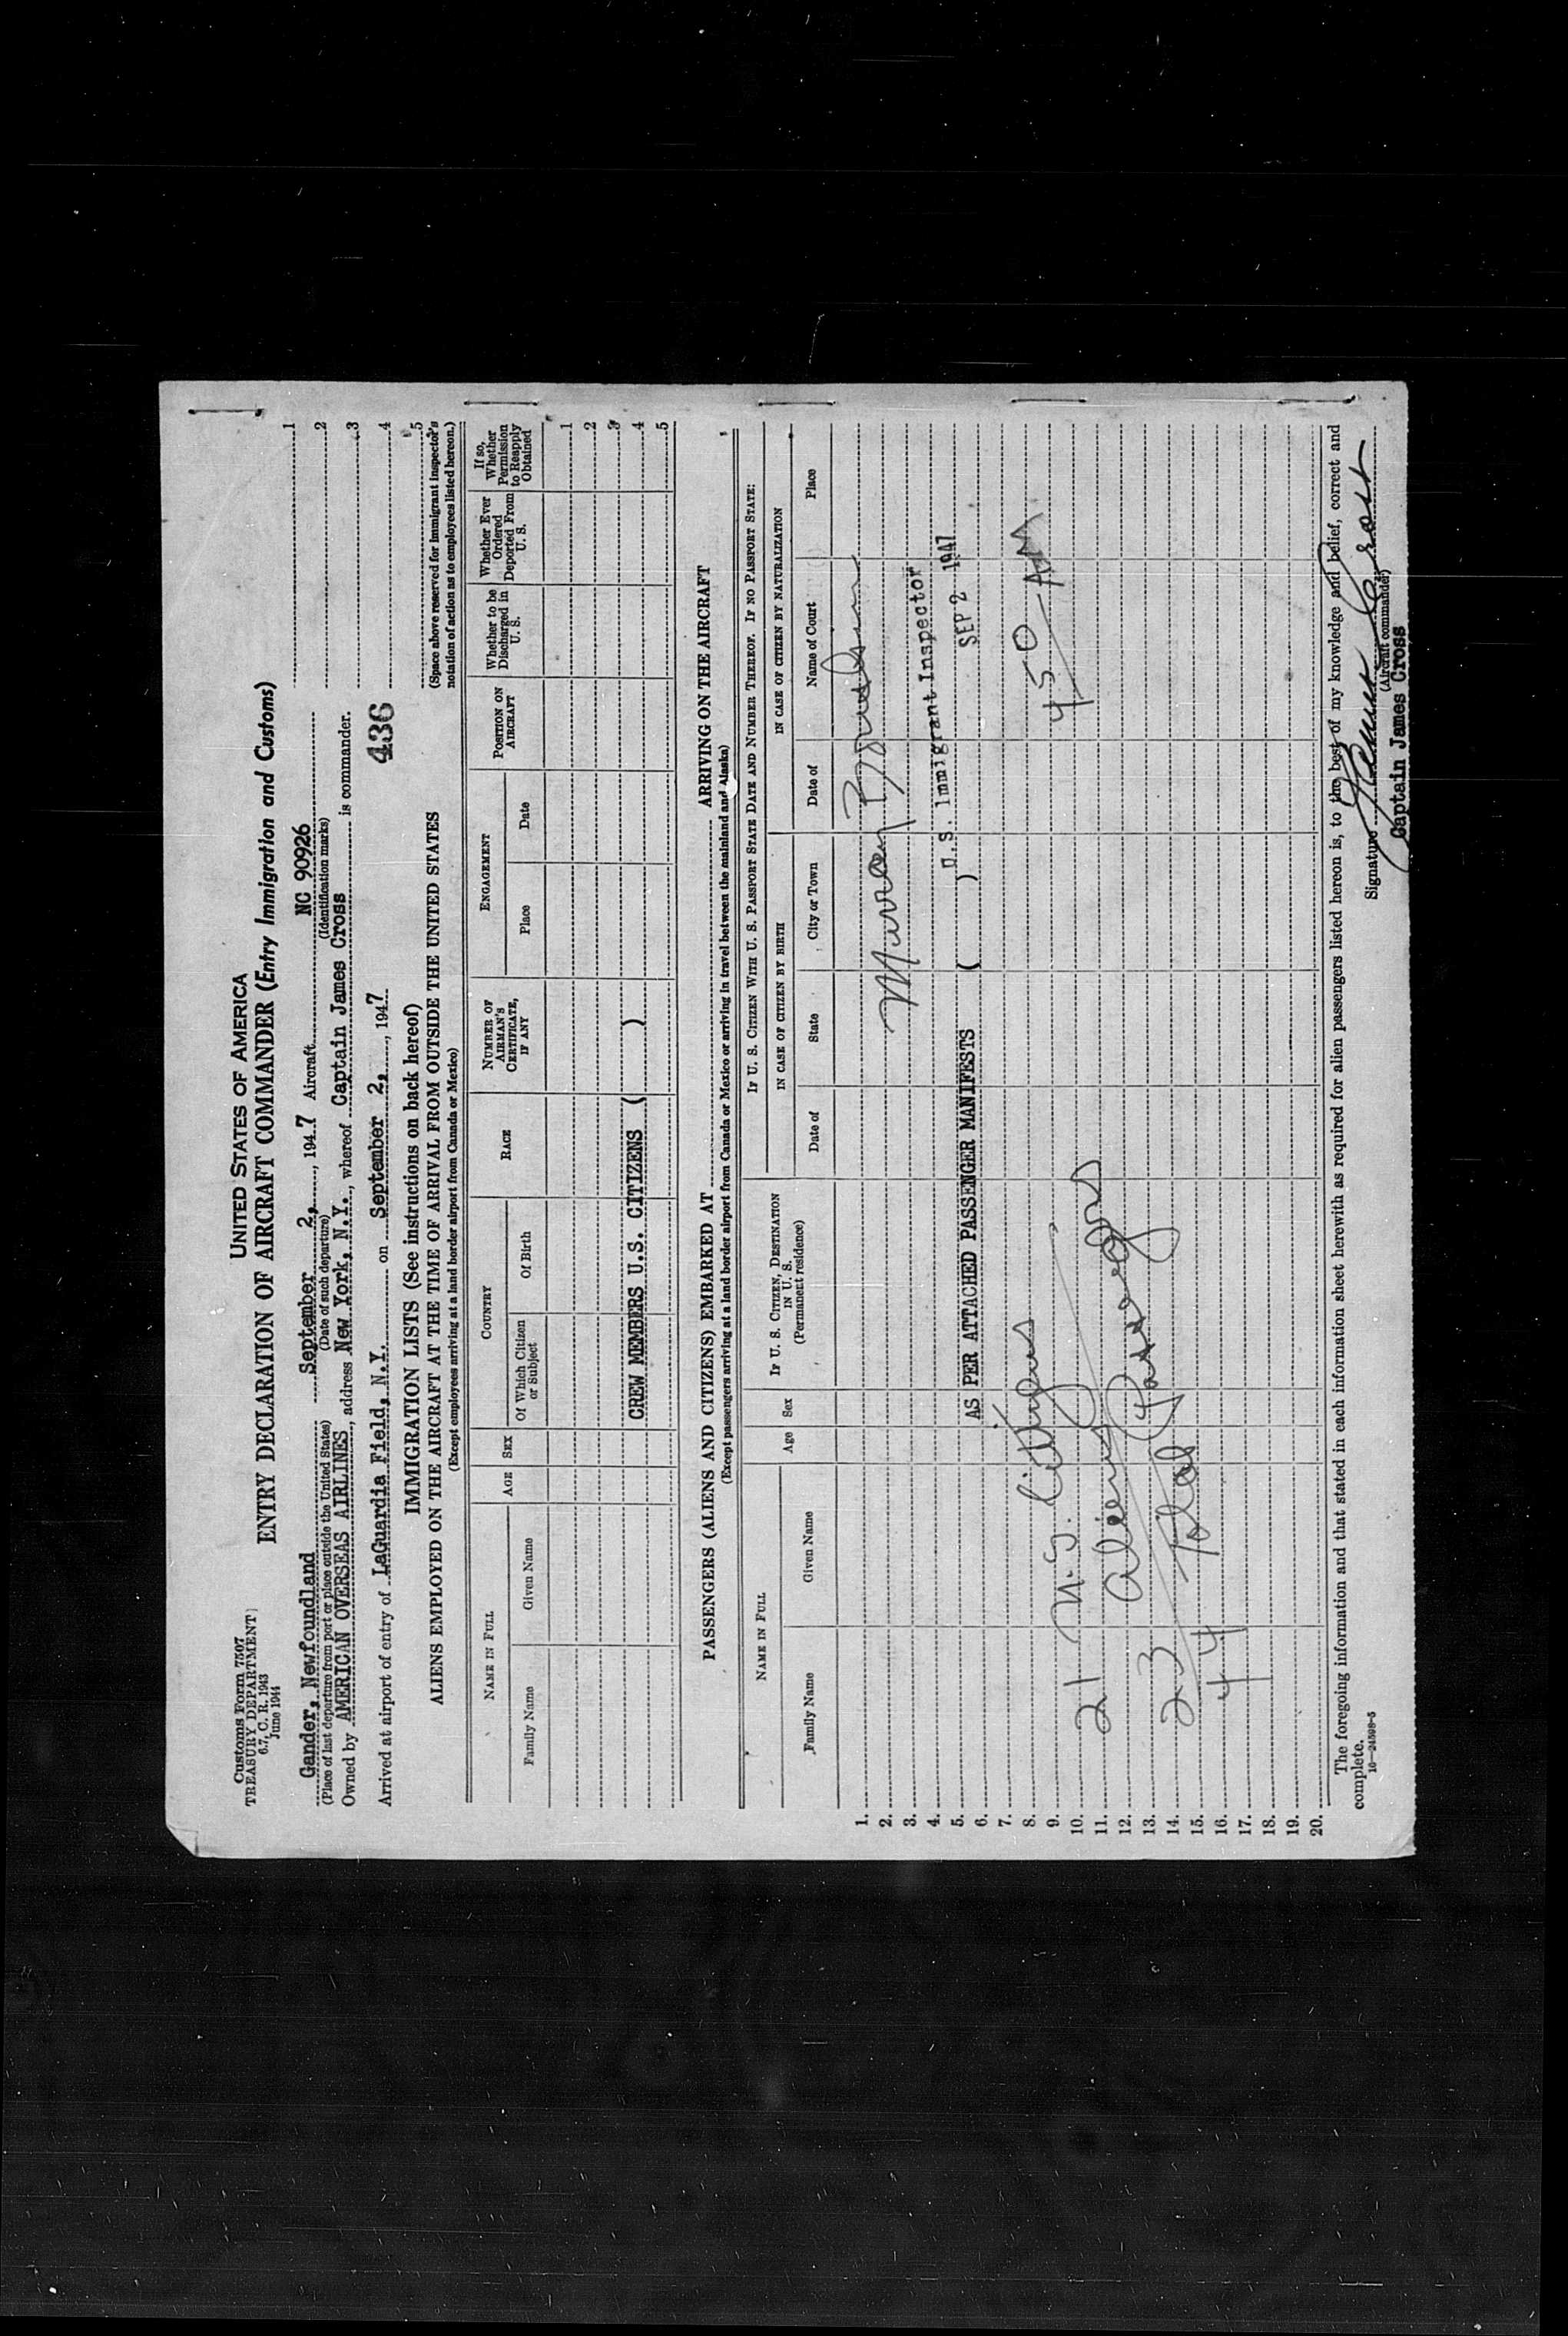 Customs Form 7507
TREASURY DEPARTMENT
6.7, C. R. 1943
June 1944
UNITED STATES OF AMERICA
ENTRY DECLARATION OF AIRCRAFT COMMANDER (Entry Immigration and Customs)
Gander, Newfoundland September 2, 1947 Aircraft NC 90926
(Place of last departure from port or place outside the United States) (Date of such departure) (Identification marks)
Owned by AMERICAN OVERSEAS AIRLINES, address New York, N.Y., whereof Captain James Cross is commander.
Arrived at airport of entry of LaGuardia Field, N.Y. on September 2, 1947
436
1
2
3
4
5
(Space above reserved for immigrant inspector's
notation of action as to employees listed hereon.)
IMMIGRATION LISTS (See instructions on back hereof)
ALIENS EMPLOYED ON THE AIRCRAFT AT THE TIME OF ARRIVAL FROM OUTSIDE THE UNITED STATES
(Except employees arriving at a land border airport from Canada or Mexico)
NAME IN FULL
Family Name
Given Name
AGE
SEX
COUNTRY
Of Which Citizen
or Subject
Of Birth
RACE
NUMBER OF
AIRMAN'S
CERTIFICATE,
IF ANY
ENGAGEMENT
Place
Date
POSITION ON
AIRCRAFT
Whether to be
Discharged in
U. S.
Whether Ever
Ordered
Deported From
U. S.
If so,
Whether
Permission
to Reapply
Obtained
1
2
3
CREW MEMBERS U.S. CITIZENS ( ) 4
5
PASSENGERS (ALIENS AND CITIZENS) EMBARKED AT ARRIVING ON THE AIRCRAFT
(Except passengers arriving at a land border airport from Canada or Mexico or arriving in travel between the mainland and Alaska)
NAME IN FULL
Family Name
Given Name
Age
Sex
IF U. S. CITIZEN, DESTINATION
IN U. S.
(Permanent residence)
IF U. S. CITIZEN WITH U. S. PASSPORT STATE DATE AND NUMBER THEREOF. IF NO PASSPORT STATE:
IN CASE OF CITIZEN BY BIRTH
IN CASE OF CITIZEN BY NATURALIZATION
Date of
State
City or Town
Date of
Name of Court
Place
1.
2. Murray
3.
4. U.S. Immigrant Inspector
5. AS PER ATTACHED PASSENGER MANIFESTS ( ) SEP 2 1947
6.
7.
8.
9. 450 AM
10. 21 U.S. Citizens
11.
12. Aliens
13. Passengers
14. 23
15. Total
16. 44
17.
18.
19.
20.
The foregoing information and that stated in each information sheet herewith as required for alien passengers listed hereon is, to the best of my knowledge and belief, correct and
complete.
16—24598-5
Signature James Cross
(Aircraft commander)
Captain James Cross